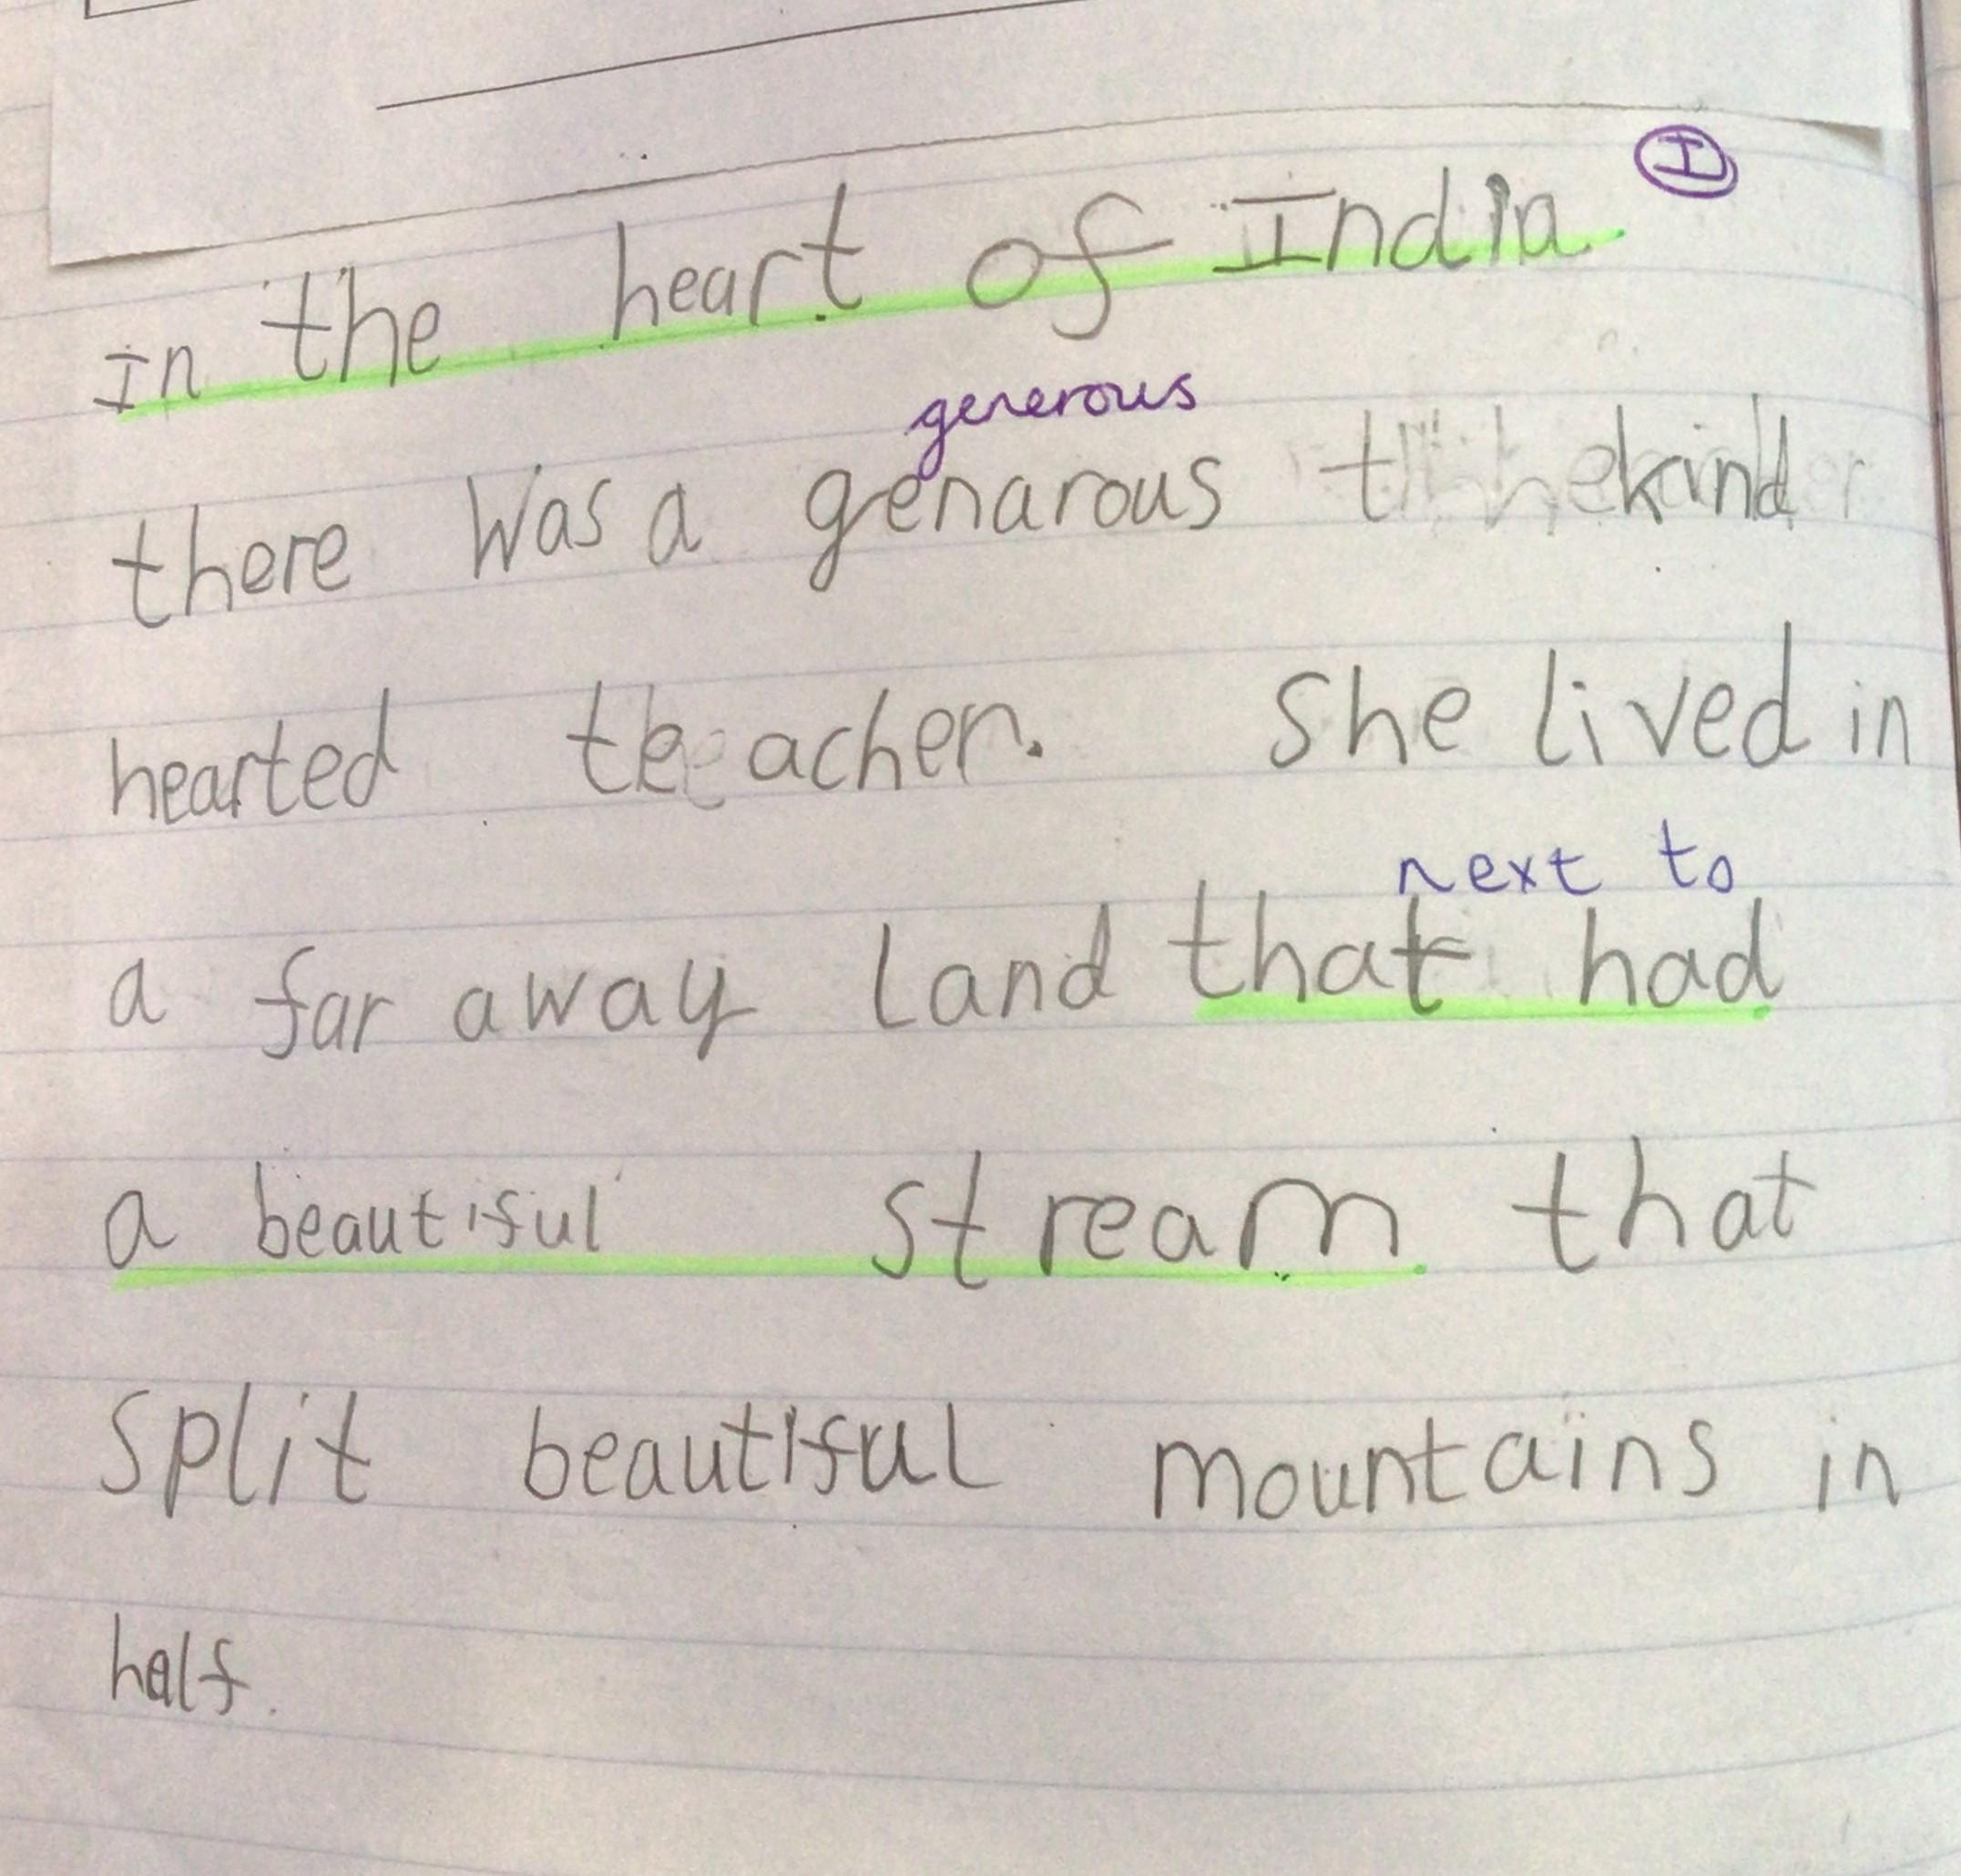 In the heart of India. I
generous
there was a genarous kind
hearted teacher. She lived in
next to
a far away land that had
a beautiful stream that
split beautiful mountains in
half.